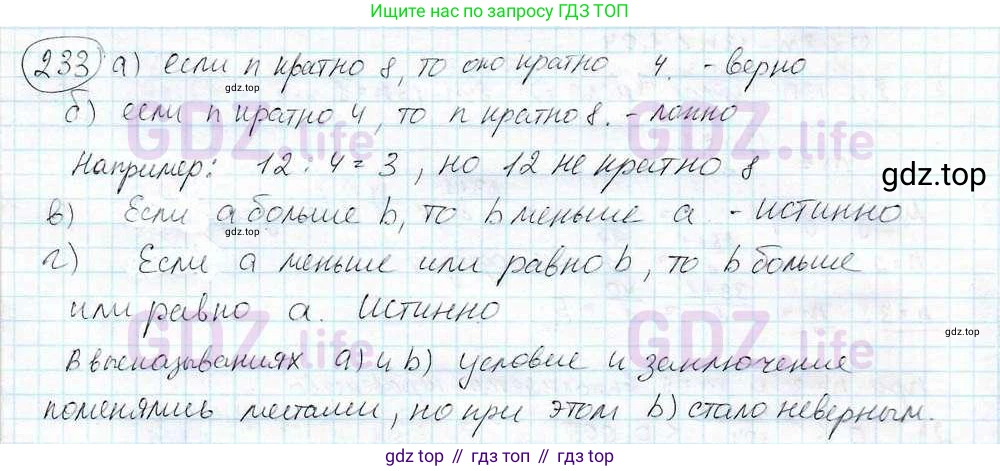 Ищите нас по запросу ГДЗ ТОП
233 а) если n кратно 8, то оно кратно 4. - верно
gdz.top
б) если n кратно 4, то n кратно 8. - ложно
GDZ.life GDZ.life
Например: 12 : 4 = 3, но 12 не кратно 8
gdz.top
в) Если a больше b, то b меньше a - истинно
gdz.top gdz.top
г) Если a меньше или равно b, то b больше
или равно a. Истинно
GDZ.life GDZ.life
В высказываниях а) и b) условие и заключение
поменялись местами, но при этом b) стало неверным.
gdz.top // гдз топ // гдз.топ